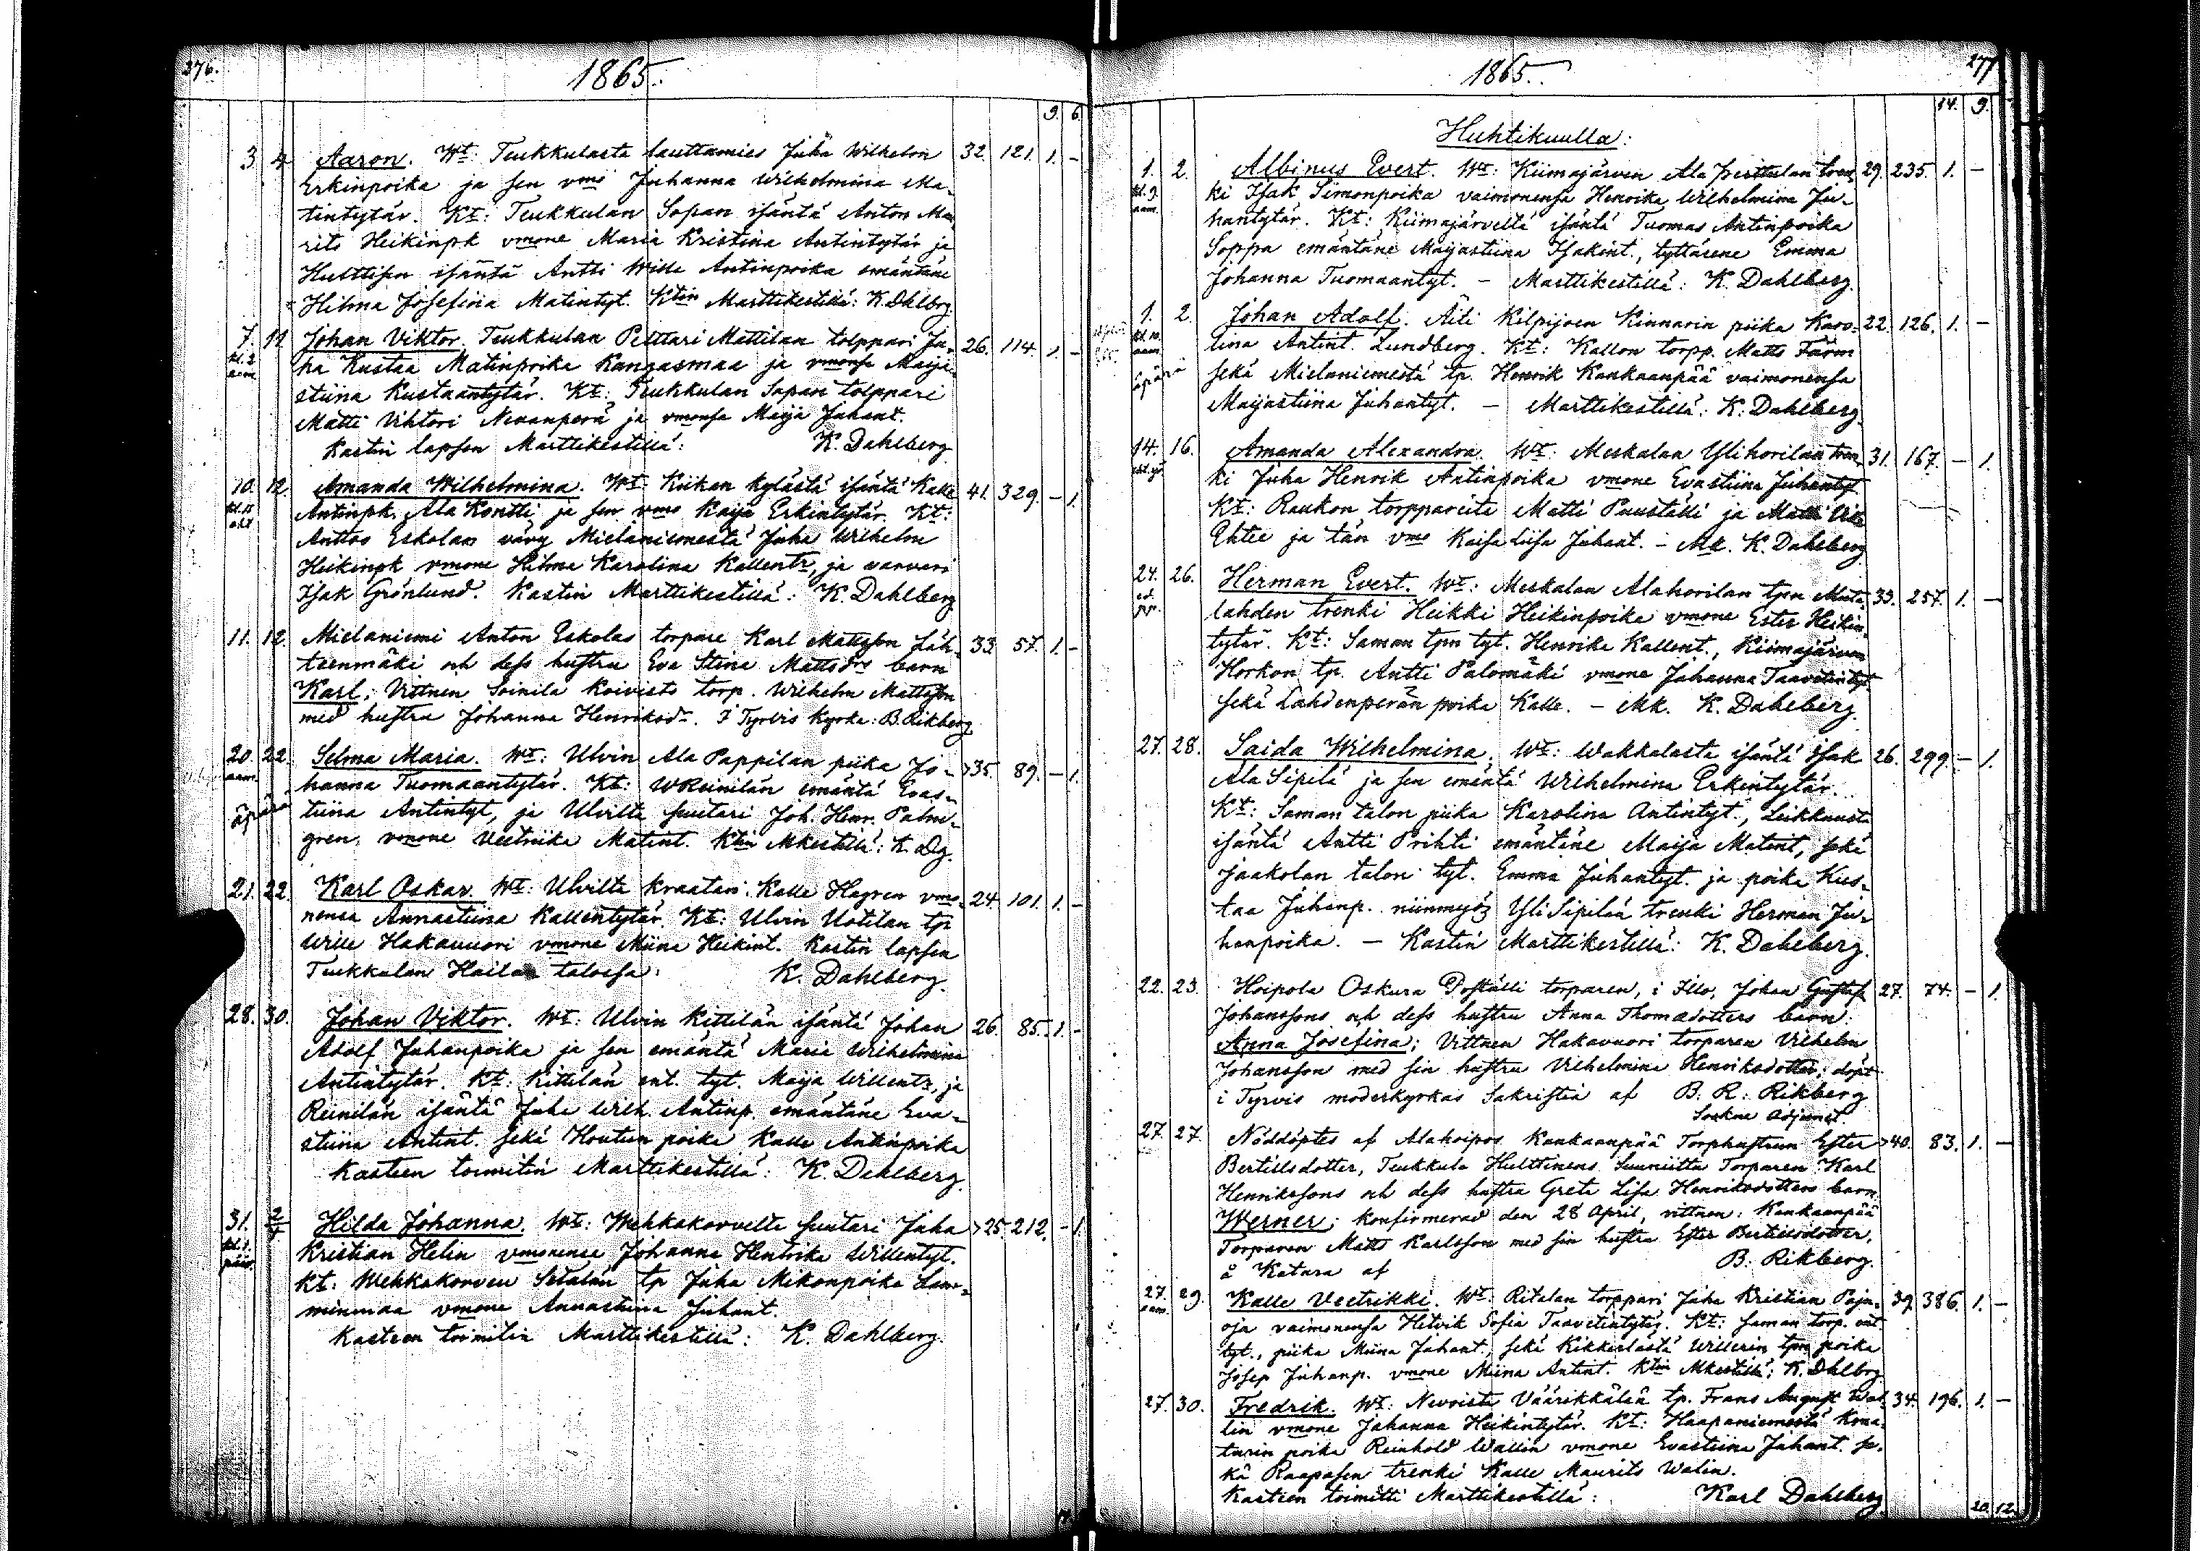 276.
1865.
9. 6.
3. 4. Aaron. Wt: Teukkulasta lauttamies Juha Wilhelm 32. 121. 1. -
Erkinpoika ja sen vms Juhanna Wilhelmina Ma-
tintytär. Kt: Teukkulan Sopan isäntä Anton Mau-
rits Heikinpk vmone Maria Kristina Antintytär ja
isäntä Antti Wille Antinpoika emäntäne
Hilma Josefina Matintyt. Ktin Marttikestillä: K. Dhlbrg.
7. 11. Johan Viktor. Teukkulan Pelttari Mattilan tolppari Ju- 26. 114. 1. -
kl. 2 aam. ha Kustaa Matinpoika Kangasmaa ja vmonsa Maija-
stiina Kustaantytär. Kt: Teukkulan Sopan tolppari
Matti Vihtori Nevanperä ja vmonsa Maija Juhant.
Kastin lapsen Marttikestillä: K. Dahlberg.
10. 12. Amanda Wilhelmina. Wt: Kiikan kylästä isäntä Kalle 41. 329. - 1.
Antinpk. Ala Kontti ja sen vms Kaija Erkintytär. Kt:
Anttoo Eskolan vävy Mielaniemestä Juha Wilhelm
Heikinpk vmone Hilma Karolina Kallentr, ja vanveri
Isak Grönlund. Kastin Marttikestillä: K. Dahlberg
11. 12. Mielaniemi Anton Eskolas torpare Karl Mattsson Läh- 33. 57. 1. -
teenmäki och dess hustru Eva Stina Mattsdrs barn
Karl; Vittnen Soinila Koivisto torp. Wilhelm Mattsson
med hustru Johanna Henriksdr. I Tyrvis Kyrka: B. Rikberg
20. 22. Selma Maria. Wt: Ulvin Ala Pappilan piika Jo- 35. 89. - 1.
aam. hanna Tuomaantytär. Kt: WReinilän emäntä Evas-
äpärä tiina Antintyt, ja Ulvilta suutari Joh. Henr. Palm-
gren, vmone Veetriika Matint. Ktin Mkestillä: K. Dg.
21. 22. Karl Oskar. Wt: Ulvilta kraatari Kalle Hagren vmo- 24. 101. 1. -
nensa Annastiina Kallentytär. Kt: Ulvin Uotilan tp.
Wille Hakavuori vmone Miina Heikint. Kastin lapsen
Teukkulan Hailan talossa: K. Dahlberg.
28. 30. Johan Viktor. Wt: Ulvin Kittilän isäntä Johan 26. 85. 1. -
Adolf Juhanpoika ja sen emäntä Maria Wilhelmina
Antintytär. Kt: Kittilän ent. tyt. Maija Willentr, ja
Reinilän isäntä Juha Wilh. Antinp. emäntäne Eva-
stiina Antint. sekä Houtun poika Kalle Antinpoika
Kasteen toimitin Marttikestillä: K. Dahlberg.
31. 2/4 Hilda Johanna. Wt: Wehkakorvelta suutari Juha 25. 212. - 1.
Kristian Helin vmonensa Johanna Henrika Willentyt.
Kt: Wehkakorven Setälän tp Juha Mikonpoika Lam-
minmaa vmone Annastiina Juhant.
Kasteen toimitin Marttikestillä: K. Dahlberg.
277
1865.
14. 9.
Huhtikuulla:
1. 2. Albinus Evert. Wt: Kiimajärven Ala Perttulan tren- 29. 235. 1. -
kl. 3. aam. ki Isak Simonpoika vaimonensa Henrika Wilhelmina Ju-
hantytär. Kt: Kiimajärveltä isäntä Tuomas Antinpoika
Soppa emäntäne Maijastiina Isakint., tyttärene Emma
Johanna Tuomaantyt. - Marttikestillä: K. Dahlberg.
1. 2. Johan Adolf. Äiti Kilpijoen Kinnarin piika Karo- 22. 126. 1. -
kl. 10. aam. liina Antint. Lundberg. Kt: Kallon torpp. Matts Färm
äpärä sekä Mielaniemestä tp. Henrik Kankaanpää vaimonensa
Maijastiina Juhantyt. - Marttikestillä: K. Dahlberg.
14. 16. Amanda Alexandra. Wt: Meskalan Ylihorilan tren- 31. 167. - 1.
ki Juha Henrik Antinpoika vmone Evastiina Juhantyt.
Kt: Raukon torppareita Matti Puustelli ja Matti Ville
Ehtee ja tän vms Kaisa Liisa Juhant. - Mk. K. Dahlberg
24. 26. Herman Evert. Wt: Meskalan Alahorilan tpn Muta- 33. 257. 1. -
lahden trenki Heikki Heikinpoika vmone Ester Heikin-
tytär. Kt: Saman tpn tyt. Henrika Kallent., Kiimajärven
Horkon tp. Antti Palomäki vmone Johanna Taavetintyt
sekä Lahdenperän poika Kalle. - Mk. K. Dahlberg.
27. 28. Saida Wilhelmina. Wt: Wakkalasta isäntä Isak 26. 299. - 1.
Ala Sipilä ja sen emäntä Wilhelmina Erkintytär.
Kt: Saman talon piika Karolina Antintyt., Leikkuusta
isäntä Antti Prihti emäntäne Maija Matint, sekä
Jaakolan talon tyt. Emma Juhantyt. ja poika Kus-
taa Juhanp. niinmyös YliSipilän trenki Herman Ju-
hanpoika. - Kastin Marttikestillä: K. Dahlberg.
22. 23. Hoipola Oskura Poställi torparen, i Illo, Johan Gustaf 27. 74. - 1.
Johanssons och dess hustru Anna Thomædotters barn:
Anna Josefina; Vittnen Hakavuori torparen Vilhelm
Johansson med sin hustru Vilhelmina Henriksdotter; döpt
i Tyrvis moderkyrkas Sakristia af B. R. Rikberg
Sockne Adjunct.
27. 27. Nöddöptes af Alahoipos Kankaanpää Torphustrun Ester 40. 83. 1. -
Bertillsdotter, Teukkula Hulttinens Suuniittu Torparen Karl
Henrikssons och dess hustru Greta Lisa Henriksdotters barn
Werner; konfirmerad den 28 April, vittnen: Kankaanpää
Torparen Matts Karlsson med sin hustru Ester Bertilsdotter,
å Katara af B. Rikberg.
27. 29. Kalle Veetrikki. Wt: Ritalan torppari Juha Kristian Poju- 39. 386. 1. -
aam. oja vaimonensa Hetvik Sofia Taavetintytär. Kt: saman torp. ent.
tyt., piika Miina Juhant., sekä Kikkerlästä Willerin tpn poika
Josep Juhanp. vmone Miina Antint. Ktin Mkestillä: K. Dhlbrg
27. 30. Fredrik. Wt: Nevoista Väärikkälän tp. Frans August Wal- 34. 196. 1. -
lin vmone Johanna Heikintytär. Kt: Haapaniemestä
poika Reinhold Wallin vmone Evastiina Juhant. se-
kä Raapasen trenki Kalle Maurits Walin.
Kasteen toimitti Marttikestillä: Karl Dahlberg.
20. 12.